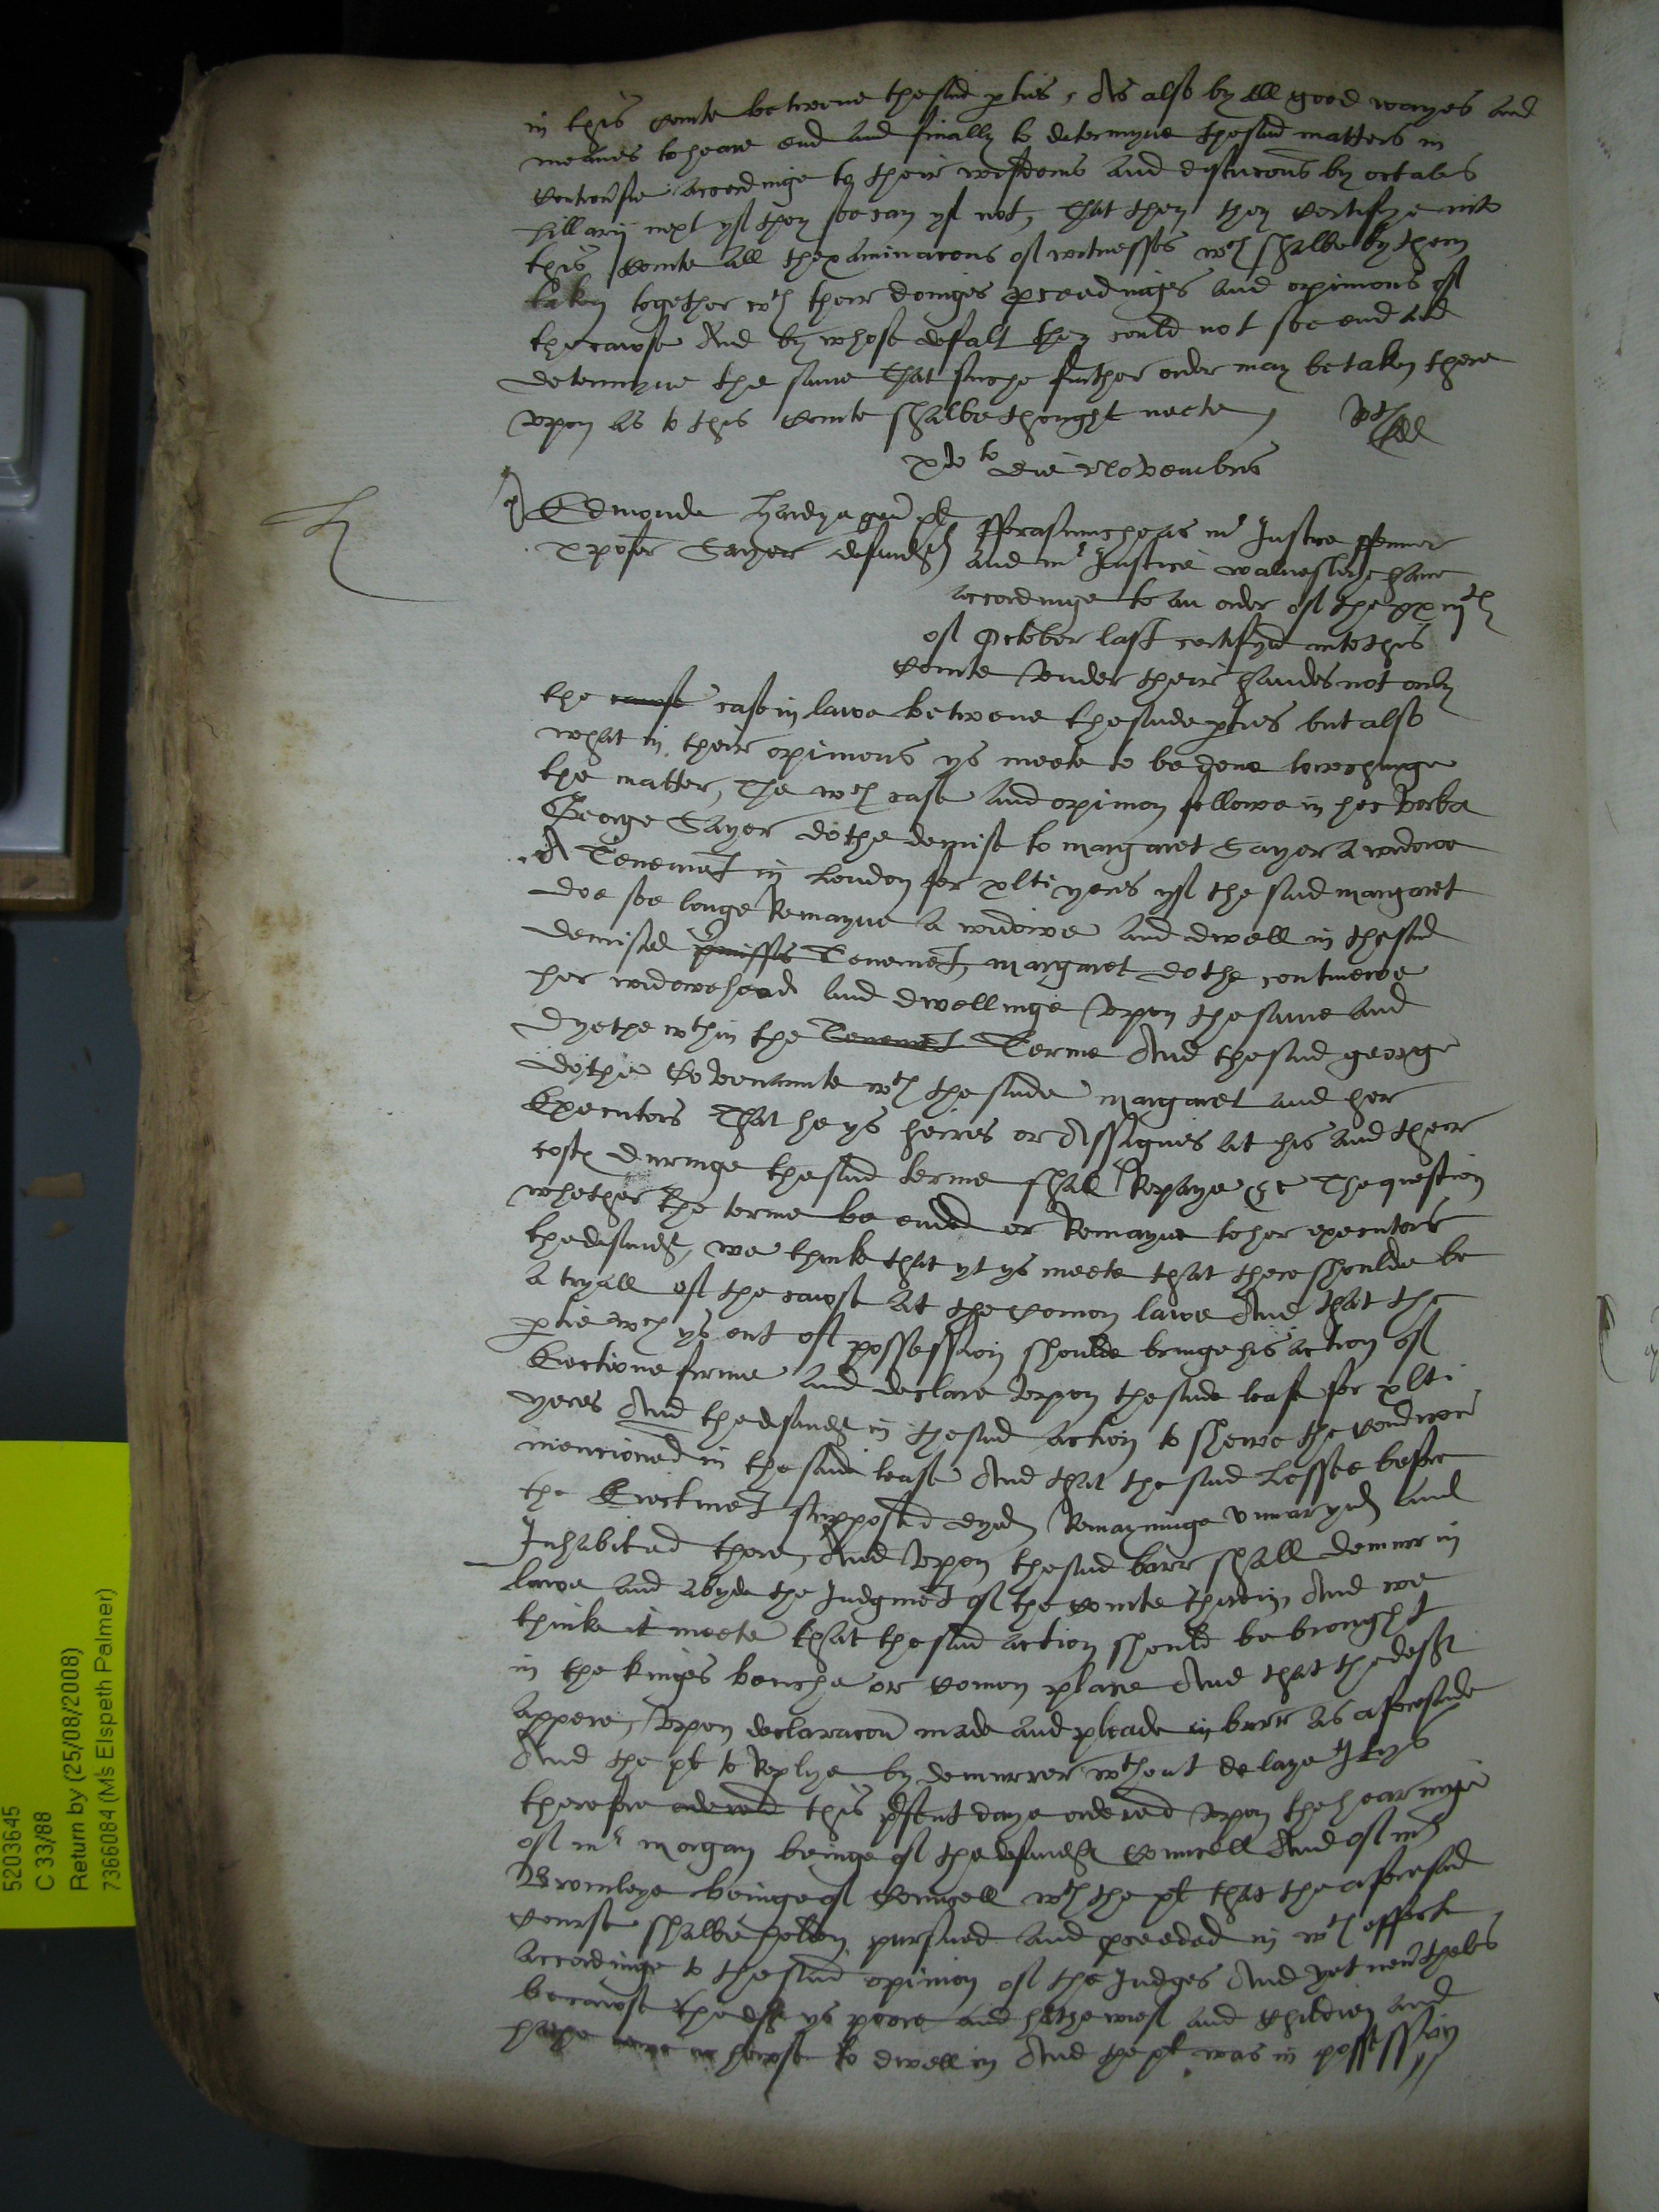 in this Courte betwene thesaid pties, As also by all good wayes and
meanes to heare end and finally to determyne thesaid matters in
Controusie accordinge to their wisdoms and discrecons by octabis
hillarij next yf they soe can yf not, That they then Certifye into
this Courte all thexaminacons of witnesses wch shalbe by them
taken together wth their doinges pceedinges and opinions of
the cawse And by whose defalt they could not soe end and
determyne the same That suche further order may be taken there
vpon as to this Courte shalbe thought meete
die Novembris
A
Edmonde gen plt
Xpofer Sayer defendt
fforasmuche as mr Justice ffenner
and mr Justice walmesley have
accordinge to an order of the xxiijth
of October last certifyed into this
Courte vnder their handes not only
the cawse case in lawe betwene thesaide pties but also
what in their opinions ys meete to be done towchinge
the matter, The wch case and opinion followe in hec verba
George Sayer dothe demise to margaret Sayer a widowe
A Tenemt in London for xlti yeres yf the said margaret
doe soe longe Remayne a widowe and dwell in thesaid
demised pmisses Tenemt, margaret dothe continewe
her widowehead and dwellinge vpon the same and
dyethe wthin the Tenemt Terme And thesaid george
dothe Covenaunte wth the saide margaret and her
Executors That he ys heires or Assignes at his and their
costes duringe thesaid terme shall Repayre &c The question
whether the terme be ended or Remayne to her executors
thedefendt, we think that yt ys meete that there shoulde be
a tryall of the cawse at the Comon lawe And that the
ptie wch ys out of possession shoulde bringe his action of
Eiectione firme and declare vpon thesaide lease for xlti
yeres And thedefendt in thesaid action to shewe the Condicon
mencioned in thesaide lease And that the said Lessee before
the Eiectmet supposed dyed Remayninge vnmaryed and
Inhabited there, And vpon thesaid barr shall demurr in
lawe and abyde the Judgmet of the Courte therein, And we
thinke it meete that thesaid action should be brought
in the kinges benche or Comon place And that thedeft
appere, vpon declaracon made and pleade in barr as aforesaide
And the plt to Replye by demurrer wthout delaye It ys
therefore ordered this psent daye ordered vpon the hearinge
of mr morgan beinge of thedefendtes Councell And of mr
Bromleye beinge of Councell wth the plt that the aforesaid
Course shalbe holden pursued and pceeded in wth effecte
accordinge to thesaid opinion of the Judges And yet neutheles
becawse thedeft ys poore and hathe wief and Children and
hathe howse to dwell in And the plt was in possession
5203645
C 33/88
Return by (25/08/2008)
7366084 (Ms Elspeth Palmer)